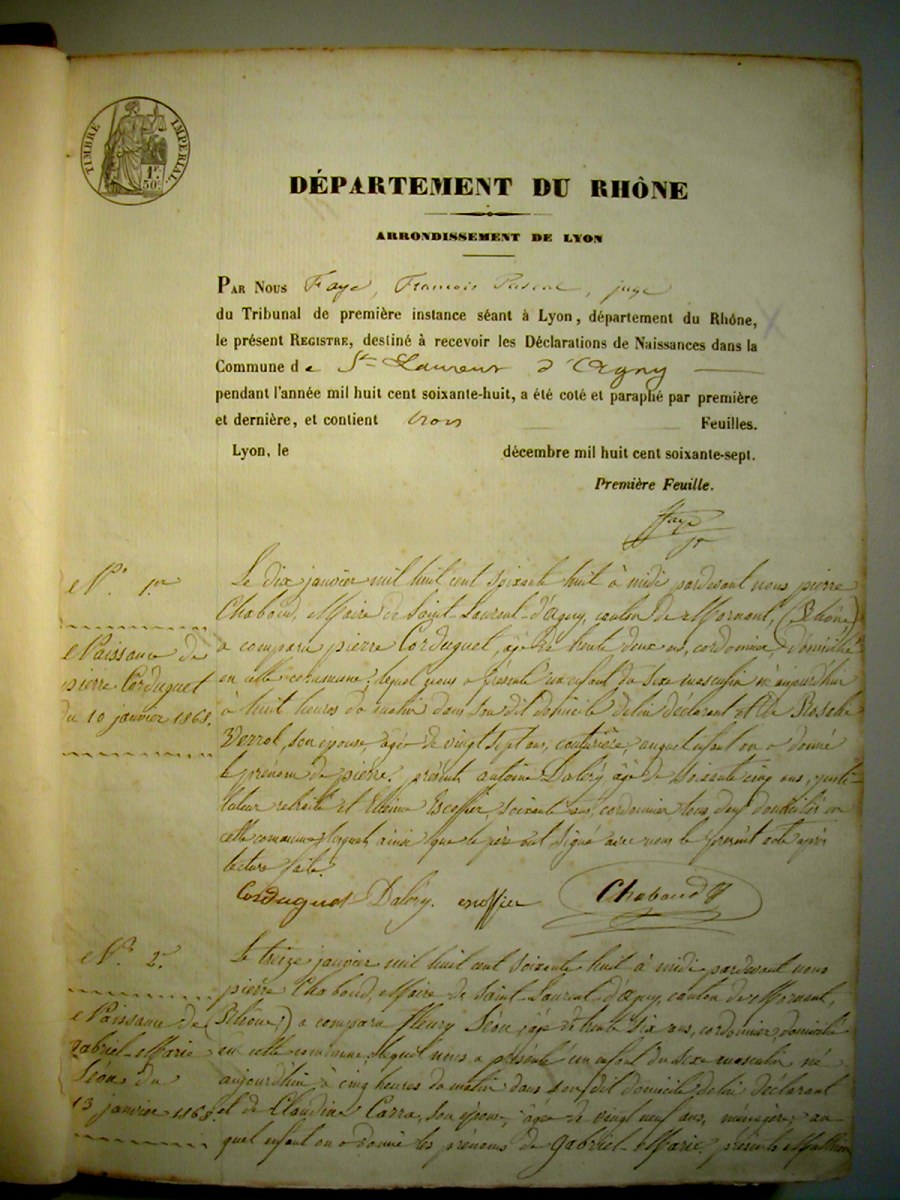 TIMBRE IMPÉRIAL
1F.
50c.
DÉPARTEMENT DU RHÔNE
ARRONDISSEMENT DE LYON
PAR NOUS Faye, François Pascal, juge
du Tribunal de première instance séant à Lyon, département du Rhône,
le présent REGISTRE, destiné à recevoir les Déclarations de Naissances dans la
Commune de St Laurent d'Agny
pendant l'année mil huit cent soixante-huit, a été coté et paraphé par première
et dernière, et contient trois Feuilles.
Lyon, le décembre mil huit cent soixante-sept.
Première Feuille.
Faye
N° 1er
Naissance de
pierre Corduguet
du 10 janvier 1868.
Le dix janvier mil huit cent soixante huit à midi pardevant nous pierre
Chaboud, Maire de Saint-Laurent-d'Agny, canton de Mornant, (Rhône)
a comparu pierre Corduguet, âgé de trente deux ans, cordonnier, domicilié
en cette commune; lequel nous a présenté un enfant du sexe masculin né aujourd'hui
à huit heures du matin dans son dit domicile de lui déclarant et de
son épouse, âgée de vingt sept ans, couturière, auquel enfant on a donné
le prénom de pierre, présents antoine Daléry âgé de soixante cinq ans,
retraité et Escoffier, soixante ans, cordonnier tous deux domiciliés en
cette commune, lesquels ainsi que le père ont signé avec nous le présent acte après
lecture faite.
Corduguet Daléry. escoffier Chaboud
N° 2.
Naissance de
gabriel-Marie
Séon du
13 janvier 1868.
Le treize janvier mil huit cent soixante huit à midi pardevant nous
pierre Chaboud, Maire de Saint-Laurent-d'Agny, canton de Mornant,
(Rhône;) a comparu fleury Séon âgé de trente six ans, cordonnier, domicilié
en cette commune lequel nous a présenté un enfant du sexe masculin né
aujourd'hui à cinq heures du matin dans son dit domicile de lui déclarant
et de Claudine Carra, son épouse, âgée de vingt neuf ans, ménagère, au
quel enfant on a donné les prénoms de gabriel-Marie, présents